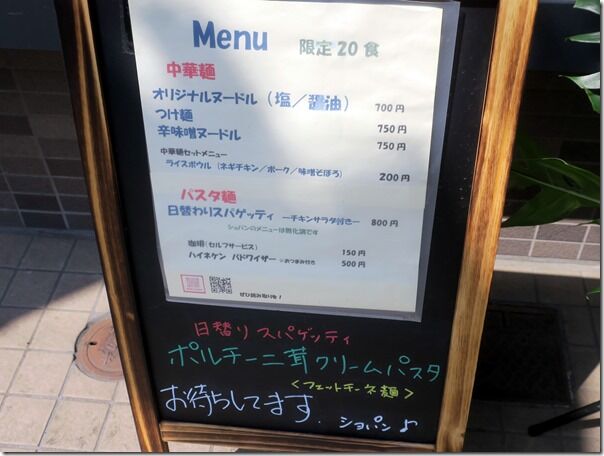 Menu 限定20食
中華麺
オリジナルヌードル（塩／醤油） 700円
つけ麺 750円
辛味噌ヌードル 750円
中華麺セットメニュー
ライスボウル（ネギチキン／ポーク／味噌そぼろ） 200円
パスタ麺
日替わりスパゲッティ －チキンサラダ付き－ 800円
ショパンのメニューは無化調です
珈琲（セルフサービス） 150円
ハイネケン バドワイザー ※おつまみ付き 500円
ぜひ読み取りを！
日替り スパゲッティ
ポルチーニ茸クリームパスタ
＜フェットチーネ麺＞
お待ちしてます．
ショパン♪